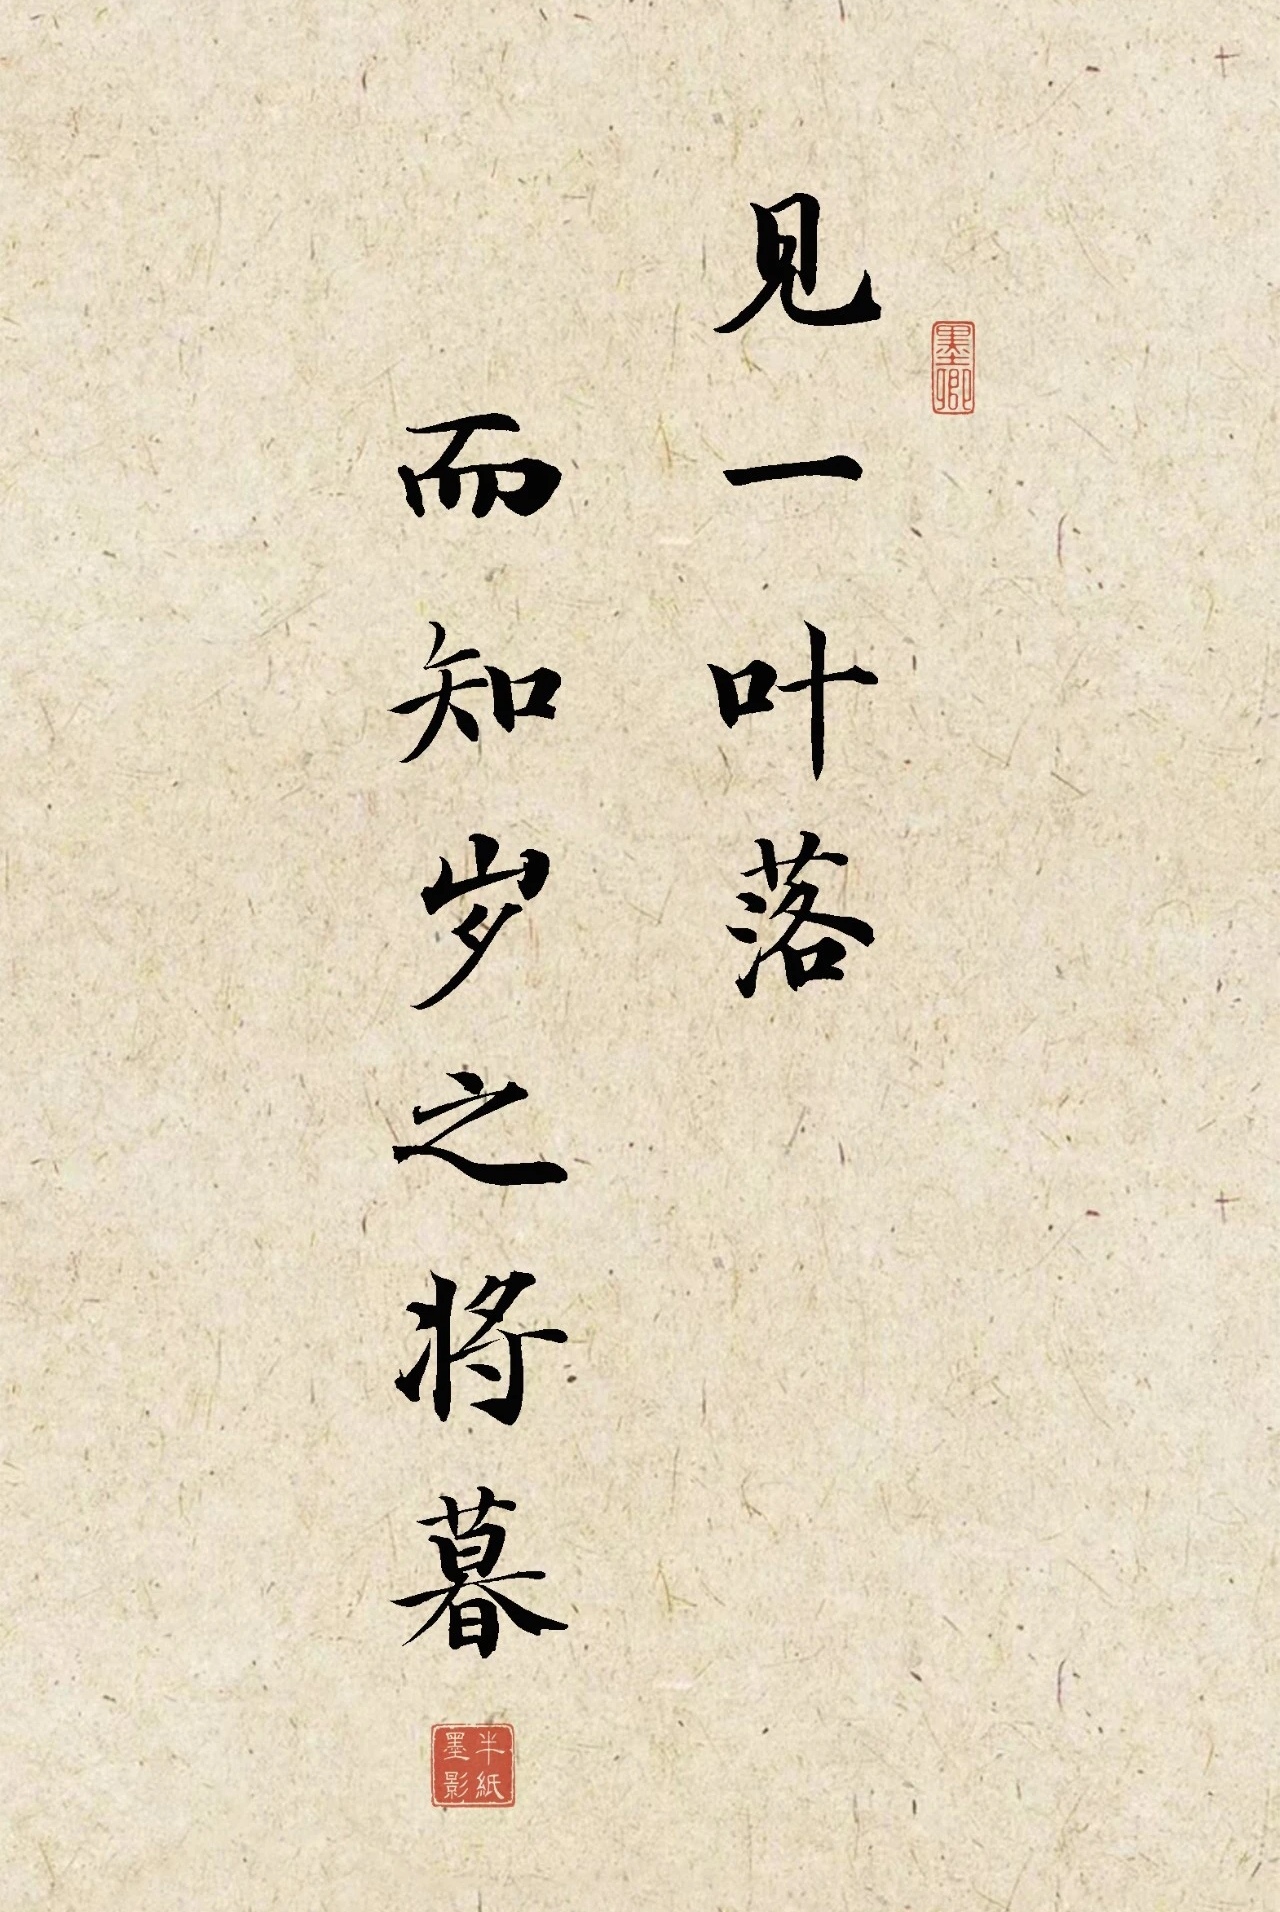 见一叶落
墨卿
而知岁之将暮
半纸
墨影